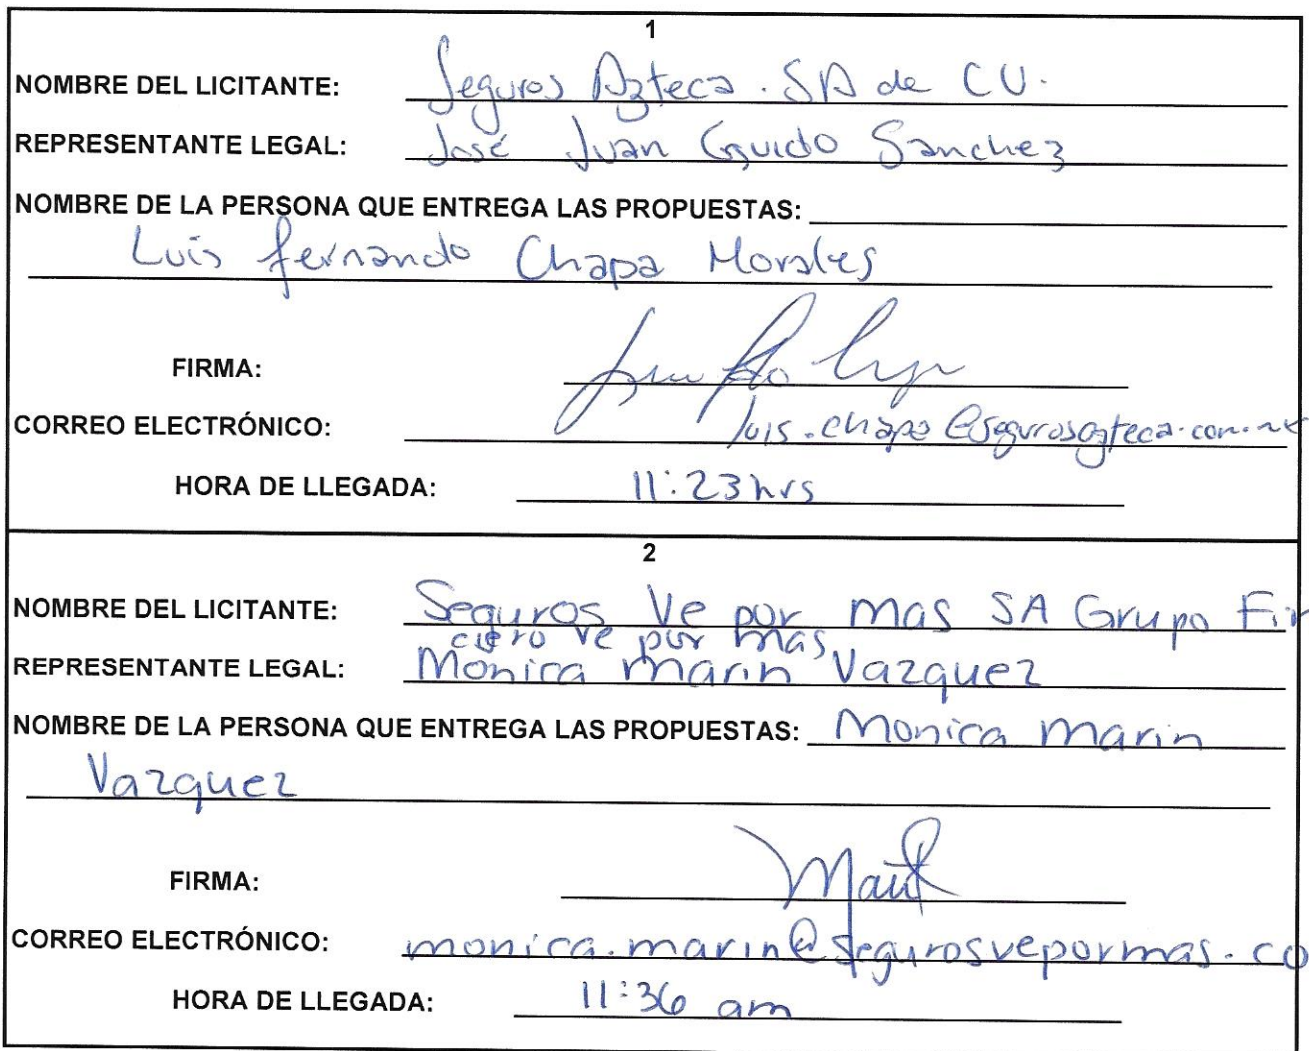 1
NOMBRE DEL LICITANTE: Seguros Azteca. SA de CV.
REPRESENTANTE LEGAL: José Juan Guido Sanchez
NOMBRE DE LA PERSONA QUE ENTREGA LAS PROPUESTAS:
Luis fernando Chapa Morales
FIRMA:
CORREO ELECTRÓNICO: luis.chapa@segurosazteca.com.mx
HORA DE LLEGADA: 11:23 hrs
2
NOMBRE DEL LICITANTE: Seguros Ve por mas SA Grupo Fin
ciero ve por mas
REPRESENTANTE LEGAL: Monica Marin Vazquez
NOMBRE DE LA PERSONA QUE ENTREGA LAS PROPUESTAS: Monica Marin
Vazquez
FIRMA:
CORREO ELECTRÓNICO: monica.marin@segurosvepormas.co
HORA DE LLEGADA: 11:36 am